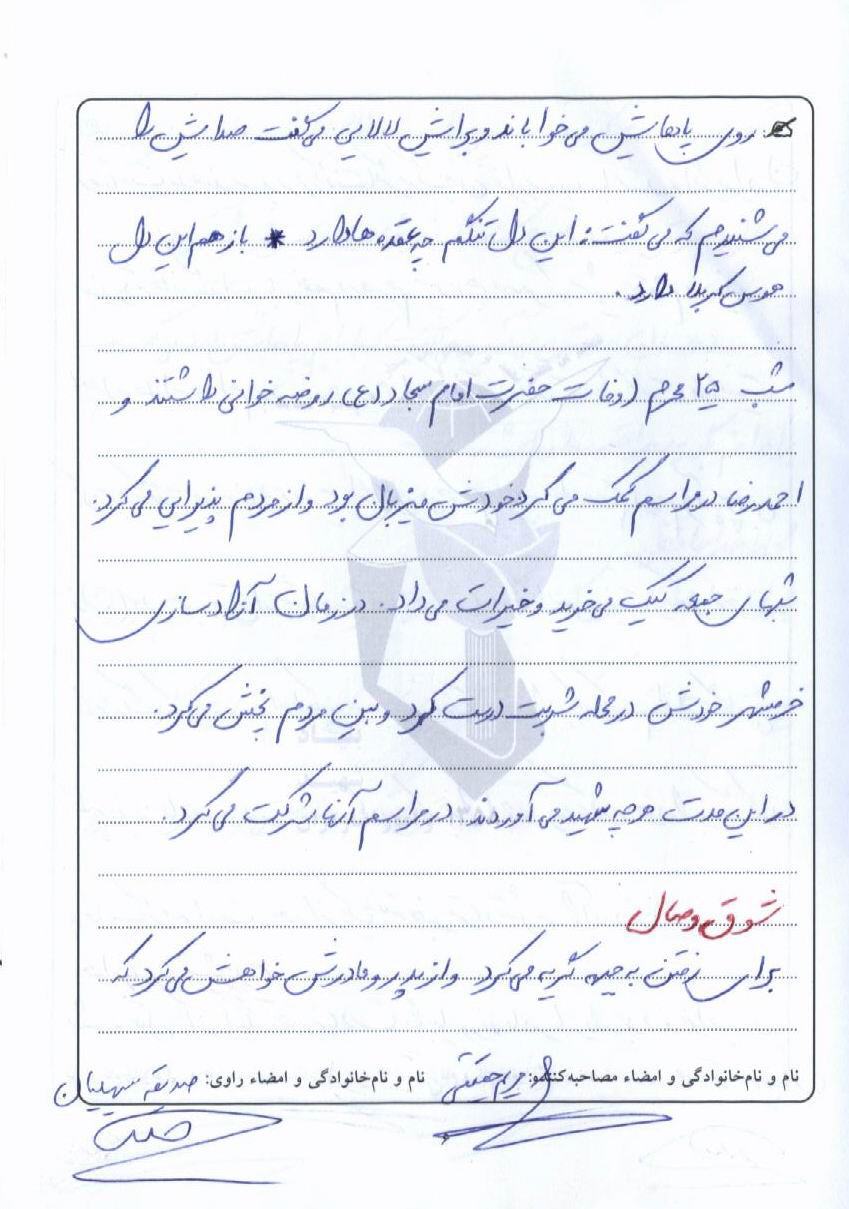 روی پاهایش می‌خواباند و برایش لالایی می‌گفت صدایش را
می‌شنیدم که می‌گفت: این دل تنگم چه عقده‌ها دارد * باز هم این دل
هوس کربلا دارد.
شب ۲۵ محرم (وفات حضرت امام سجاد (ع) روضه خوانی داشتند و
احمدرضا در مراسم کمک می‌کرد خودش میزبان بود و از مردم پذیرایی می‌کرد.
شبهای جمعه کیک می‌خرید و خیرات می‌داد. در زمان آزادسازی
خرمشهر خودش در محله شربت درست کرد و بین مردم پخش می‌کرد.
در این مدت هر چه شهید می‌آوردند در مراسم آنها شرکت می‌کرد.
شوق وصال
برای رفتن به جبهه گریه می‌کرد و از پدر و مادرش خواهش می‌کرد که
نام و نام‌خانوادگی و امضاء مصاحبه‌کننده: مریم حقیقی نام و نام‌خانوادگی و امضاء راوی: صدیقه سهیلیان